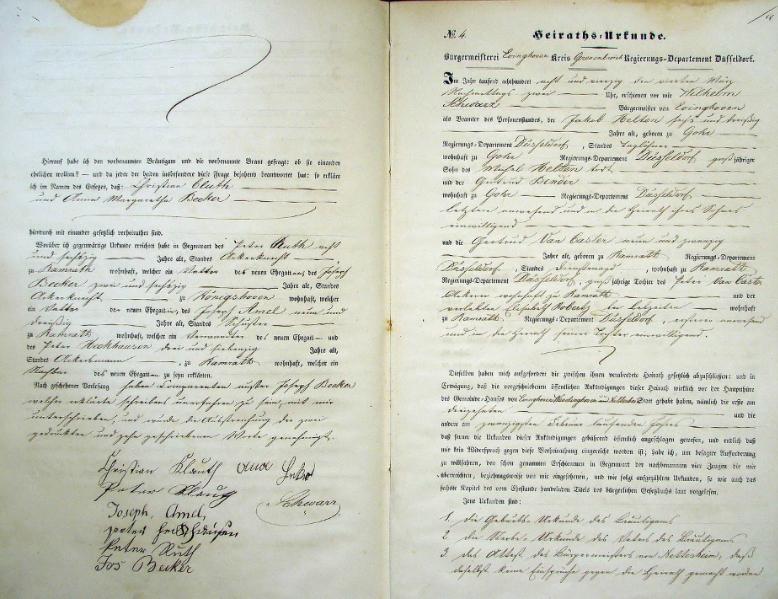 Hierauf habe ich den vorbenannten Bräutigam und die vorbenannte Braut gefragt: ob sie einander
ehelichen wollen? — und da jeder der beiden insbesondere diese Frage bejahend beantwortet hat: so erkläre
ich im Namen des Gesetzes, daß: Christian Cluth
und Anna Margaretha Becker
hierdurch mit einander gesetzlich verheirathet sind.
Worüber ich gegenwärtige Urkunde errichtet habe in Gegenwart des Peter Cluth acht
und sechszig Jahre alt, Standes Ackerknecht
zu Ramrath wohnhaft, welcher ein Vetter des neuen Ehegatten des Joseph
Becker zwei und sechszig Jahre alt, Standes
Ackerknecht zu Königshoven wohnhaft, welcher
ein Vetter der neuen Ehegattin, des Joseph Amel neun und
dreißig Jahre alt, Standes Schuster
zu Ramrath wohnhaft, welcher ein Verwandter des neuen Ehegatt und
des Peter Jahre alt,
Standes Ackersmann zu Ramrath wohnhaft, welcher ein
des neuen Ehegatten zu sein erklärten.
Nach geschehener Vorlesung haben Comparenten außer Joseph Becker
welcher erklärte schreibens unerfahren zu sein, mit mir
unterschrieben, und wurde die Ausstreichung der zwei
gedruckten und zehn geschriebenen Worte genehmigt.
Christian Klauth
Peter
Schwarz
Joseph, Amel,
peter
Peter
Jos Becker
№ 4. Heiraths-Urkunde.
Bürgermeisterei Evinghoven Kreis Grevenbroich Regierungs-Departement Düsseldorf.
Im Jahr tausend achthundert acht und vierzig den vierten März
Nachmittags zwei Uhr, erschienen vor mir Wilhelm
Schwarz Bürgermeister von Evinghoven
als Beamter des Personenstandes, der Jakob Helten sechs und dreißig
Jahre alt, geboren zu Gohr
Regierungs-Departement Düsseldorf, Standes Taglöhner
wohnhaft zu Gohr Regierungs-Departement Düsseldorf großjähriger
Sohn des Helten todt
und der Gertrud Binder
wohnhaft zu Gohr Regierungs-Departement Düsseldorf
letztere anwesend und in die Heirath ihres Sohnes
einwilligend
und die Gertrud Van Caster neun und zwanzig
Jahre alt, geboren zu Ramrath Regierungs-Departement
Düsseldorf, Standes Dienstmagd, wohnhaft zu Ramrath
Regierungs-Departement Düsseldorf, großjährige Tochter des Peter Van Caster
Ackerer wohnhaft zu Ramrath und der
verlebten Elisabeth Roberts in letzteren wohnhaft
zu Ramrath Regierungs-Departement Düsseldorf, ersterer anwesend
und in die Heirath seiner Tochter einwilligend.
Dieselben haben mich aufgefordert die zwischen ihnen verabredete Heirath gesetzlich abzuschließen: und in
Erwägung, daß die vorgeschriebenen öffentlichen Ankündigungen dieser Heirath wirklich vor der Hauptthüre
des Gemeinde-Hauses von Evinghoven Statt gehabt haben, nämlich die erste am
dreizehnten und die
andere am zwanzigsten Februar laufenden Jahres
daß ferner die Urkunden dieser Ankündigungen gebührend öffentlich angeschlagen gewesen, und endlich daß
mir kein Widerspruch gegen diese Verheirathung eingereicht worden ist; habe ich, um besagter Aufforderung
zu willfahren, den schon genannten Erschienenen in Gegenwart der nachbenannten vier Zeugen die mir
überreichten, beziehungsweise von mir eingesehenen, und wie folgt aufgezählten Urkunden, so wie auch das
sechste Kapitel des vom Ehestande handelnden Titels des bürgerlichen Gesetzbuchs laut vorgelesen.
Jene Urkunden sind:
1. die Geburts-Urkunde des Bräutigams
2. die Sterbe-Urkunde des Vaters des Bräutigams
3. das Attest des Bürgermeisters von Nettesheim, daß
daselbst keine Einsprüche gegen die Heirath gemacht worden